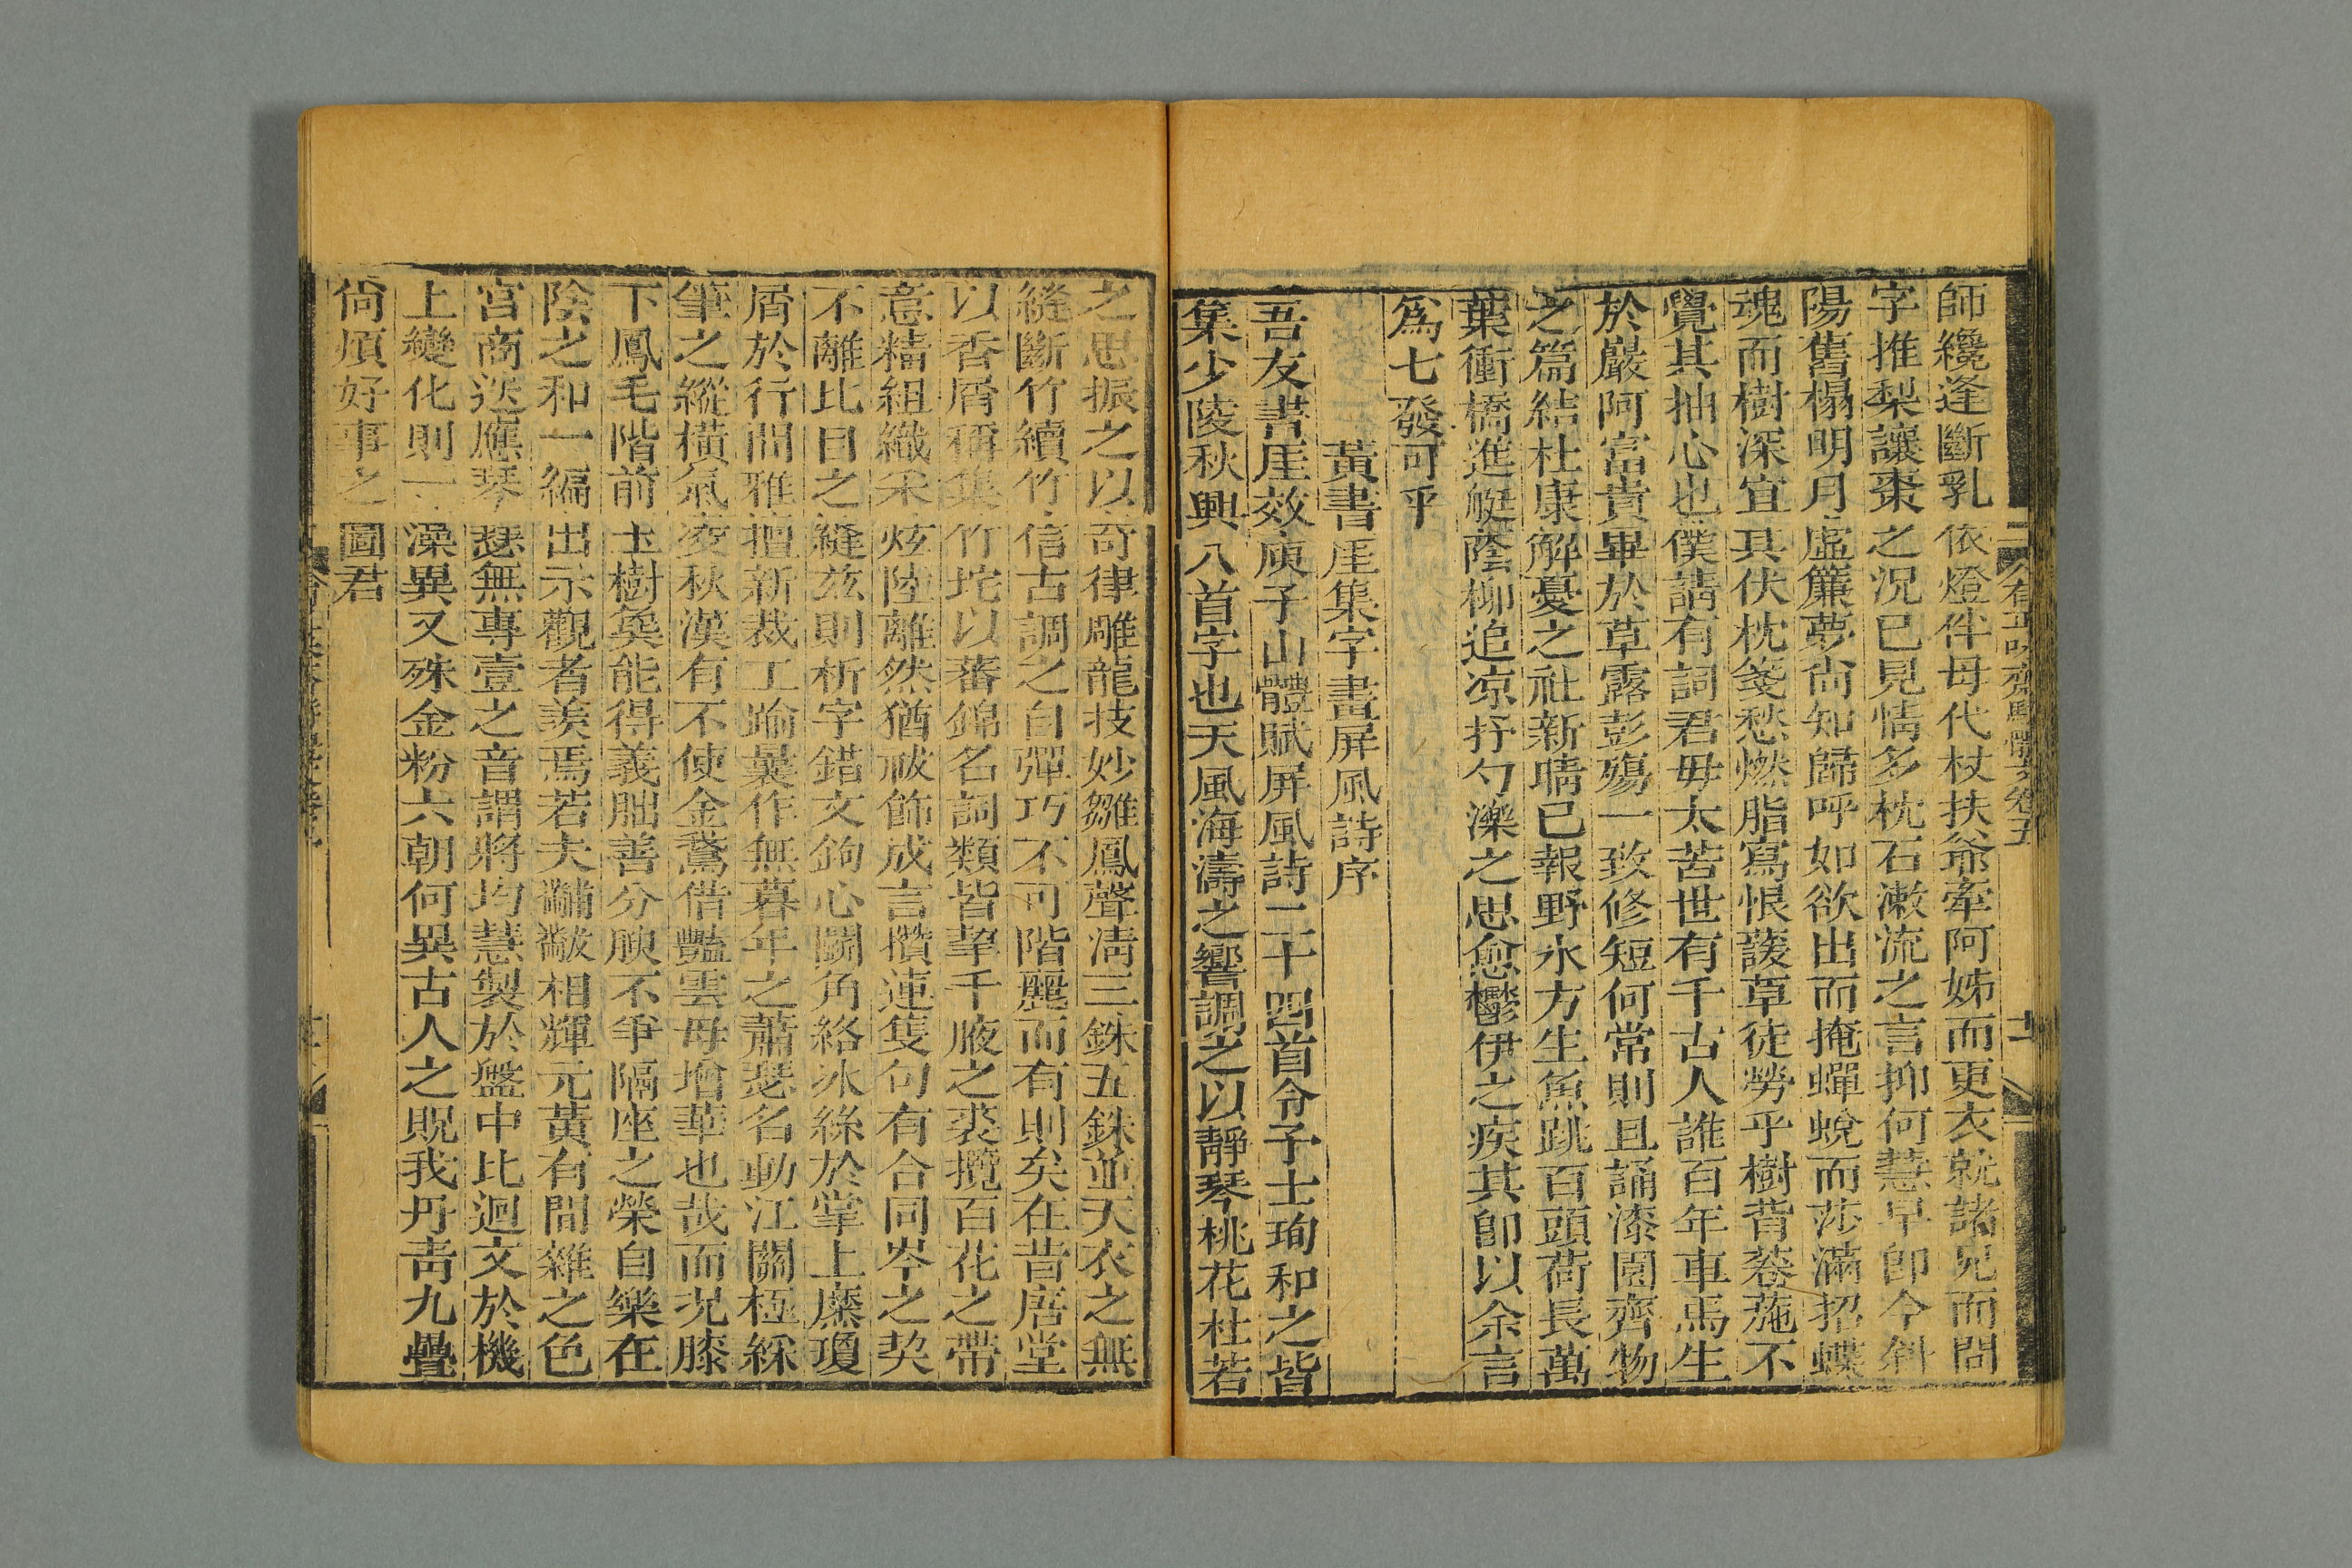 師纔逢斷乳依燈伴母代杖扶爺牽阿姊而更衣就諸兄而問
字推梨讓棗之況已見情多枕石漱流之言抑何慧早即今斜
陽舊榻明月虛簾夢尚知歸呼如欲出而掩蟬蛻而莎滿招蝶
魂而樹深宜其伏枕箋愁燃脂寫恨諼草徒勞乎樹背菤葹不
覺其抽心也僕請有詞君毋太苦世有千古人誰百年車馬生
於嚴阿富貴畢於草露彭殤一致修短何常則且誦漆園齊物
之篇結杜康解憂之社新晴已報野水方生魚跳百頭荷長萬
葉衝橋進艇蔭柳追凉抒勺濼之思愈鬱伊之疾其卽以余言
爲七發可乎
黃書厓集字畫屏風詩序
吾友書厓效庾子山體賦屏風詩二十四首令予士珣和之皆
集少陵秋興八首字也天風海濤之響調之以靜琴桃花杜若
之思振之以奇律雕龍技妙雛鳳聲淸三銖五銖並天衣之無
縫斷竹續竹信古調之自彈巧不可階麗而有則矣在昔唐堂
以香屑稱集竹垞以蕃錦名詞類皆挈千腋之裘攬百花之帶
意精組織采炫陸離然猶祓飾成言攢連隻句有合同岑之契
不離比目之縫茲則析字錯文鉤心鬭角絡冰絲於掌上糜瓊
屑於行間雅擅新裁工踰曩作無暮年之蕭瑟名動江關極綵
筆之縱橫氣凌秋漢有不使金鵞借豔雲母增華也哉而況膝
下鳳毛階前玉樹奐能得義朏善分腴不爭隔座之榮自樂在
陰之和一編出示觀者羨焉若夫黼黻相輝元黃有間雜之色
宮商迭應琴瑟無專壹之音謂將均慧製於盤中比迴文於機
上變化則一澡異又殊金粉六朝何異古人之貺我丹靑九疊
尙煩好事之圖君